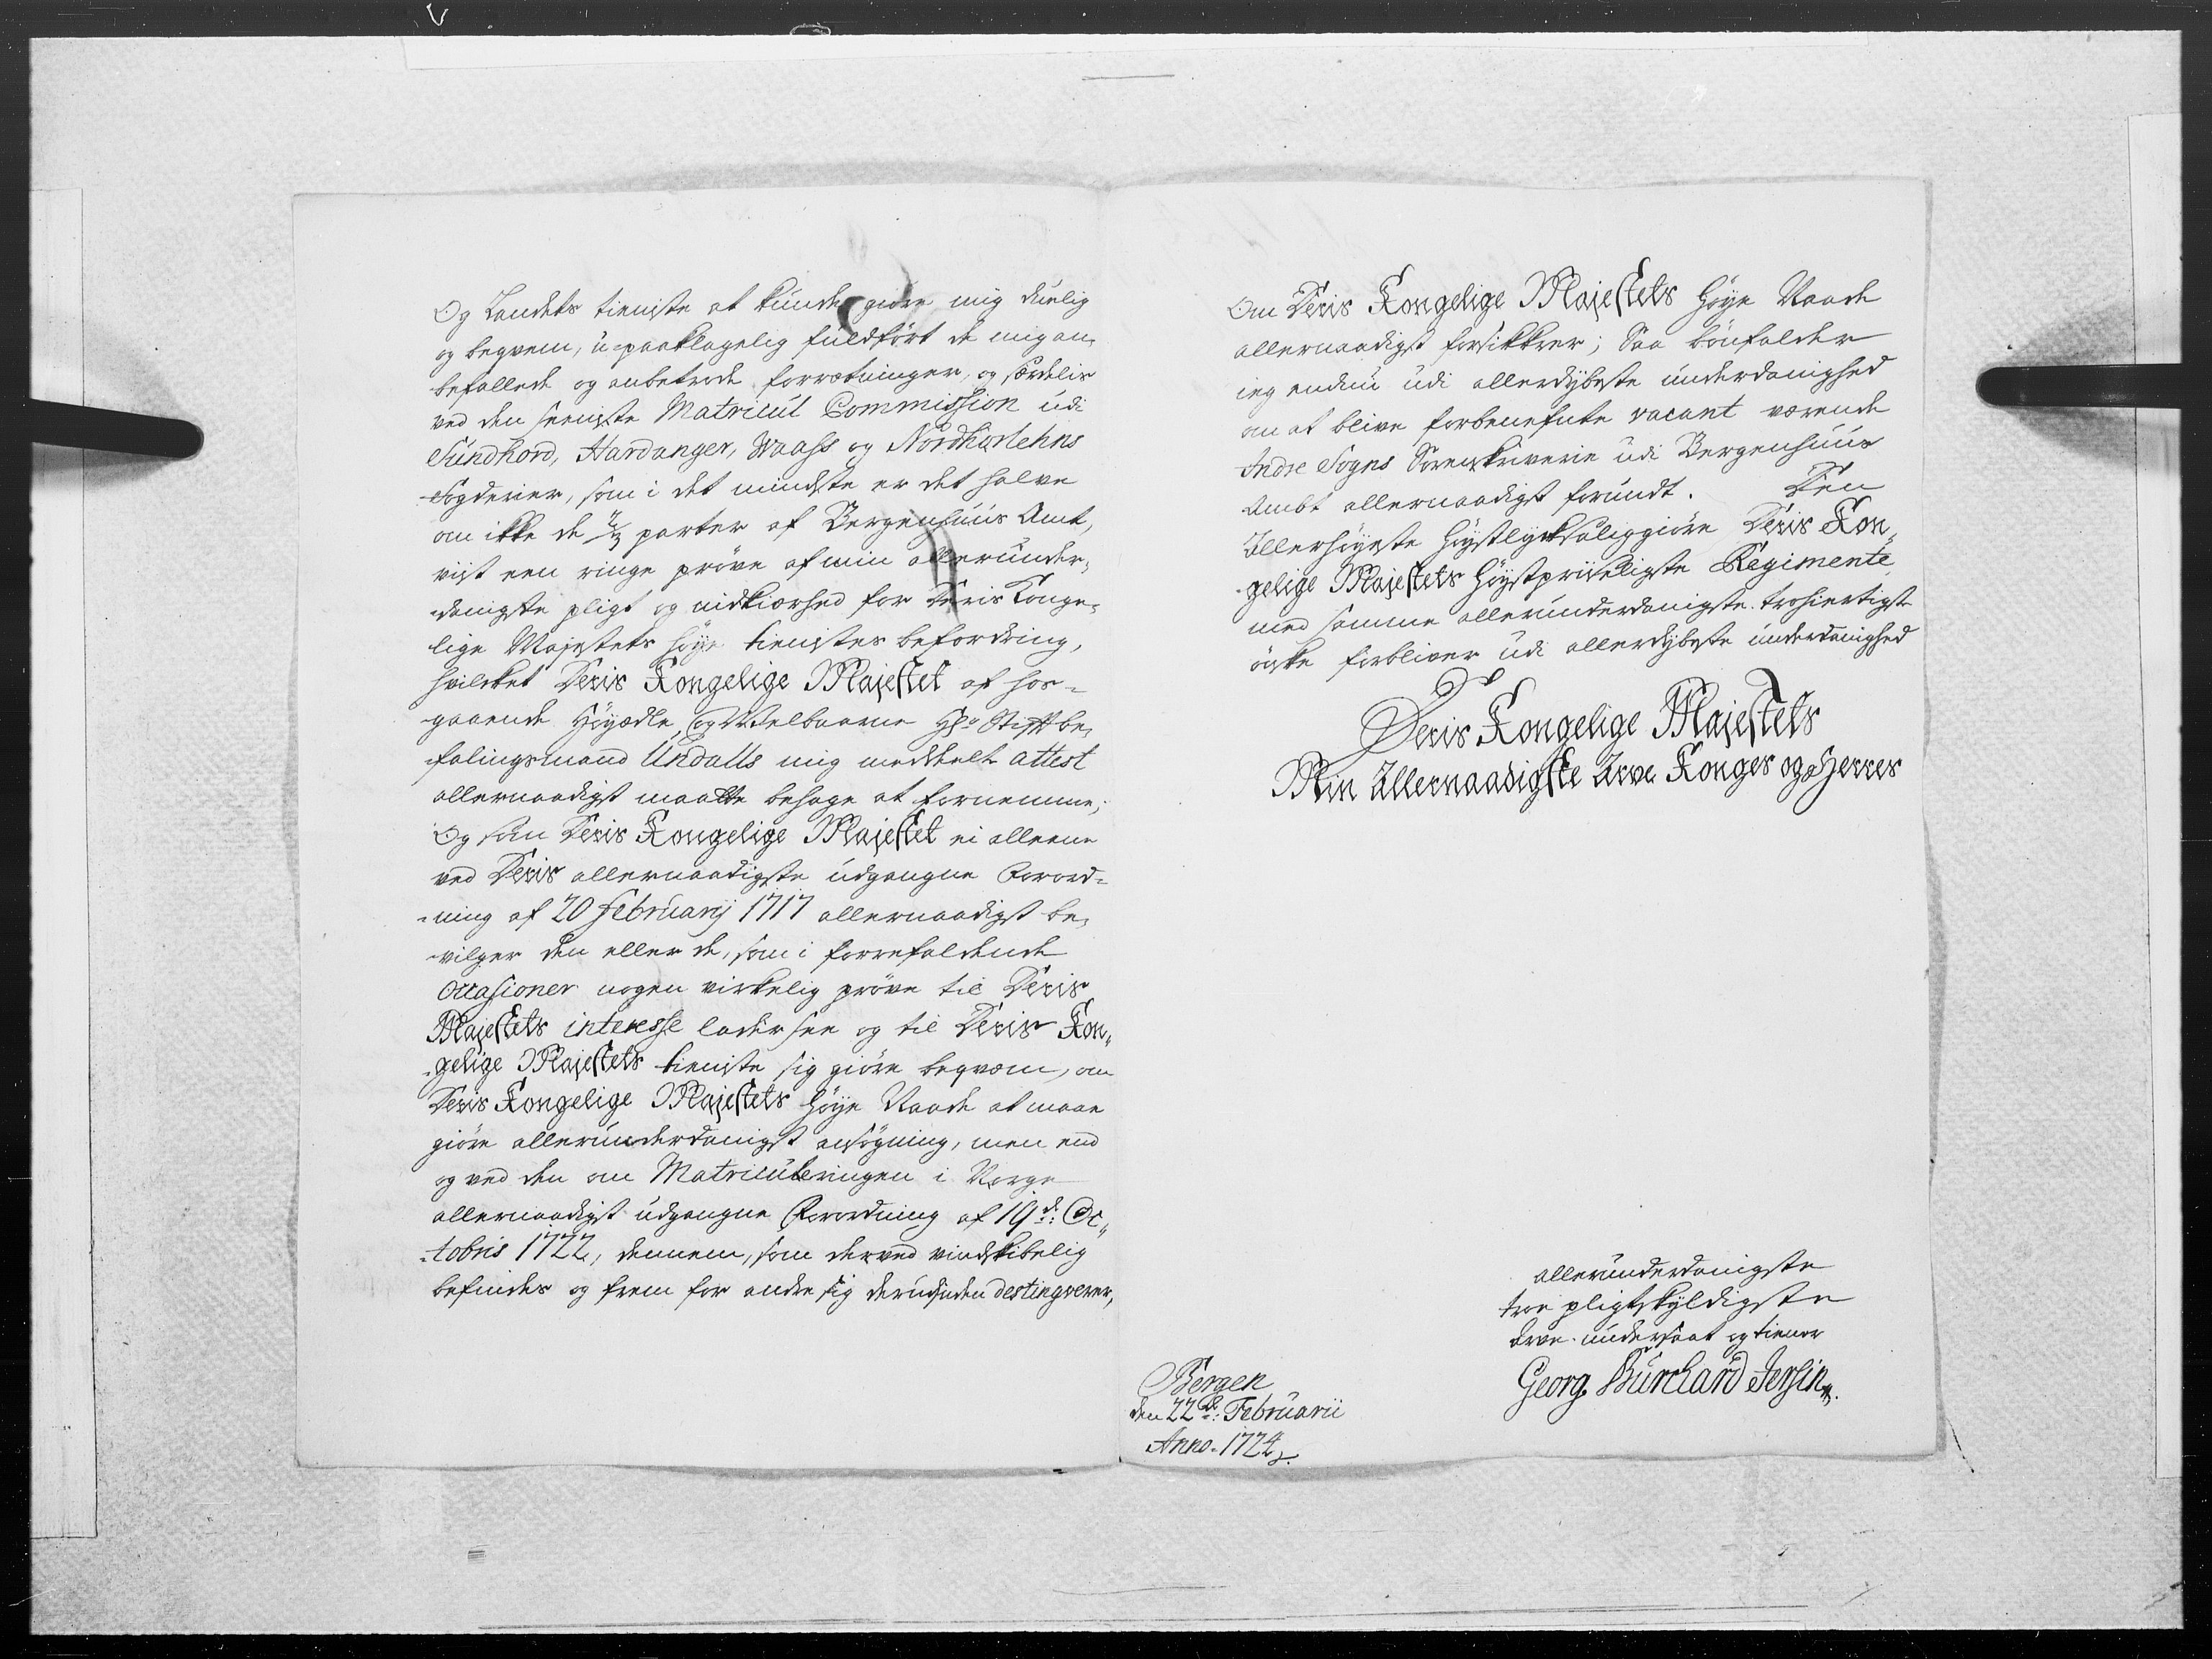 Og Landets tieniste at kunde giøre mig duelig
og beqvem, u-paaklagelig fuldført de mig an¬
befallede og anbetrode forretninger, og særdelis
ved den seeniste Matricul Commission udi
Sundhord, Hardanger, Waass og Nordhorlehns
Fogderier, som i det mindste er det halve
om ikke de 2/3 parter af Bergenhuus Amt,
vist een ringe prøve af min allerunder¬
danigste pligt og nidkiærhed for Deris Konge¬
lige Majestets høye tienistes befordring,
hvilcket Deris Kongelige Majestet af hos¬
gaaende Høyædle og Velbaarne Hr. Stiftbe¬
falingsmand Undalls mig meddeelte attest
allernaadigst maatte behage at fornemme;
Og som Deris Kongelige Majestet ei alleene
ved Deris allernaadigste udgangne Forord¬
ning af 20 Februarij 1717 allernaadigst be¬
vilger den eller de, som i forrefaldende
occasioner nogen virkelig prøve til Deris
Majestets interesse lader see og til Deris Kon¬
gelige Majestets tieniste sig giøre beqvem, om
Deris Kongelige Majestets høye Naade at maae
giøre allerunderdanigst ansøgning, men end
og ved den om Matriculeringen i Norge
allernaadigst udgangne Forordning af 19de Oc¬
tobris 1722, dennem, som derved vindskibelig
befindes og frem for andre sig derudinden destingverer,
Om Deris Kongelige Majestets høye Naade
allernaadigst forsikkrer; Saa bønfalder
ieg endnu udi allerdybeste underdanighed
om at blive forbenefnte vacant værende
Indre Sogns Sorenskriverie udi Bergenhuus
Ambt allernaadigst forundt. Den
Allerhøyeste høystlycksaliggiøre Deris Kon¬
gelige Majestets høystpriiseligste Regimente,
med samme allerunderdanigste trohiertigste
ønske forbliver udi allerdybeste underdanighed
Deris Kongelige Majestets
Min Allernaadigste Arve Konges og Herres
allerunderdanigste
troe pligtskyldigste
Arve undersaat og tiener
Georg Burchard Jersin.
Bergen
den 22de: Februarii
Anno. 1724.